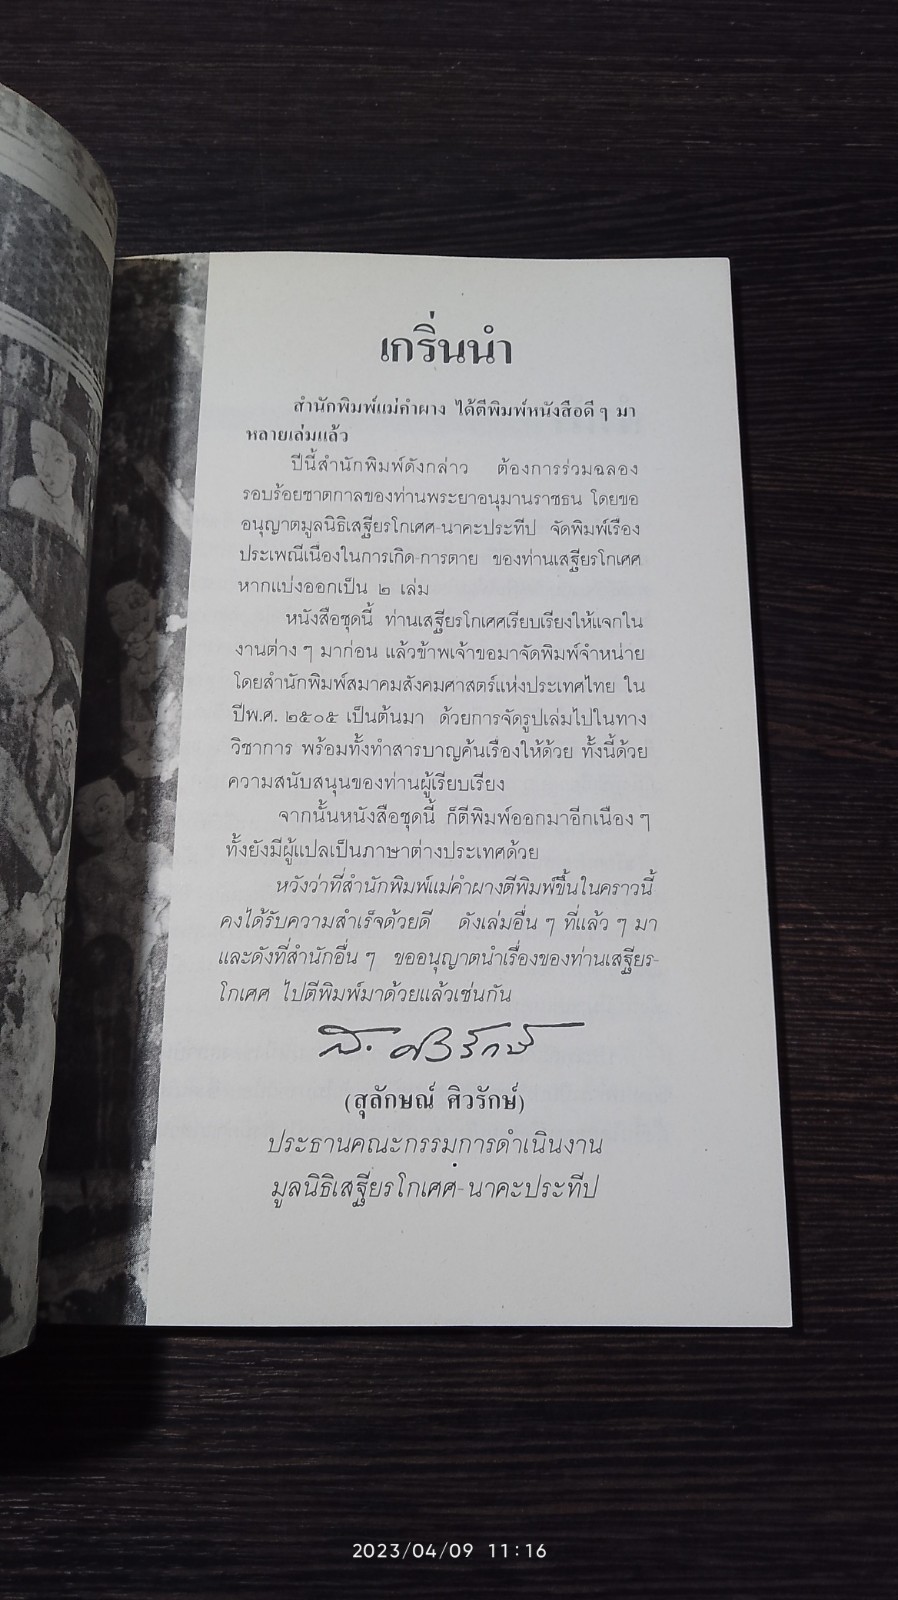 เกริ่นนำ
สำนักพิมพ์แม่คำผาง ได้ตีพิมพ์หนังสือดี ๆ มา
หลายเล่มแล้ว
ปีนี้สำนักพิมพ์ดังกล่าว ต้องการร่วมฉลอง
รอบร้อยชาตกาลของท่านพระยาอนุมานราชธน โดยขอ
อนุญาตมูลนิธิเสฐียรโกเศศ-นาคะประทีป จัดพิมพ์เรื่อง
ประเพณีเนื่องในการเกิด-การตาย ของท่านเสฐียรโกเศศ
หากแบ่งออกเป็น ๒ เล่ม
หนังสือชุดนี้ ท่านเสฐียรโกเศศเรียบเรียงให้แจกใน
งานต่าง ๆ มาก่อน แล้วข้าพเจ้าขอมาจัดพิมพ์จำหน่าย
โดยสำนักพิมพ์สมาคมสังคมศาสตร์แห่งประเทศไทย ใน
ปีพ.ศ. ๒๕๐๕ เป็นต้นมา ด้วยการจัดรูปเล่มไปในทาง
วิชาการ พร้อมทั้งทำสารบาญค้นเรื่องให้ด้วย ทั้งนี้ด้วย
ความสนับสนุนของท่านผู้เรียบเรียง
จากนั้นหนังสือชุดนี้ ก็ตีพิมพ์ออกมาอีกเนือง ๆ
ทั้งยังมีผู้แปลเป็นภาษาต่างประเทศด้วย
หวังว่าที่สำนักพิมพ์แม่คำผางตีพิมพ์ขึ้นในคราวนี้
คงได้รับความสำเร็จด้วยดี ดังเล่มอื่น ๆ ที่แล้ว ๆ มา
และดังที่สำนักอื่น ๆ ขออนุญาตนำเรื่องของท่านเสฐียร-
โกเศศ ไปตีพิมพ์มาด้วยแล้วเช่นกัน
ส. ศิวรักษ์
(สุลักษณ์ ศิวรักษ์)
ประธานคณะกรรมการดำเนินงาน
มูลนิธิเสฐียรโกเศศ-นาคะประทีป
2023/04/09 11:16